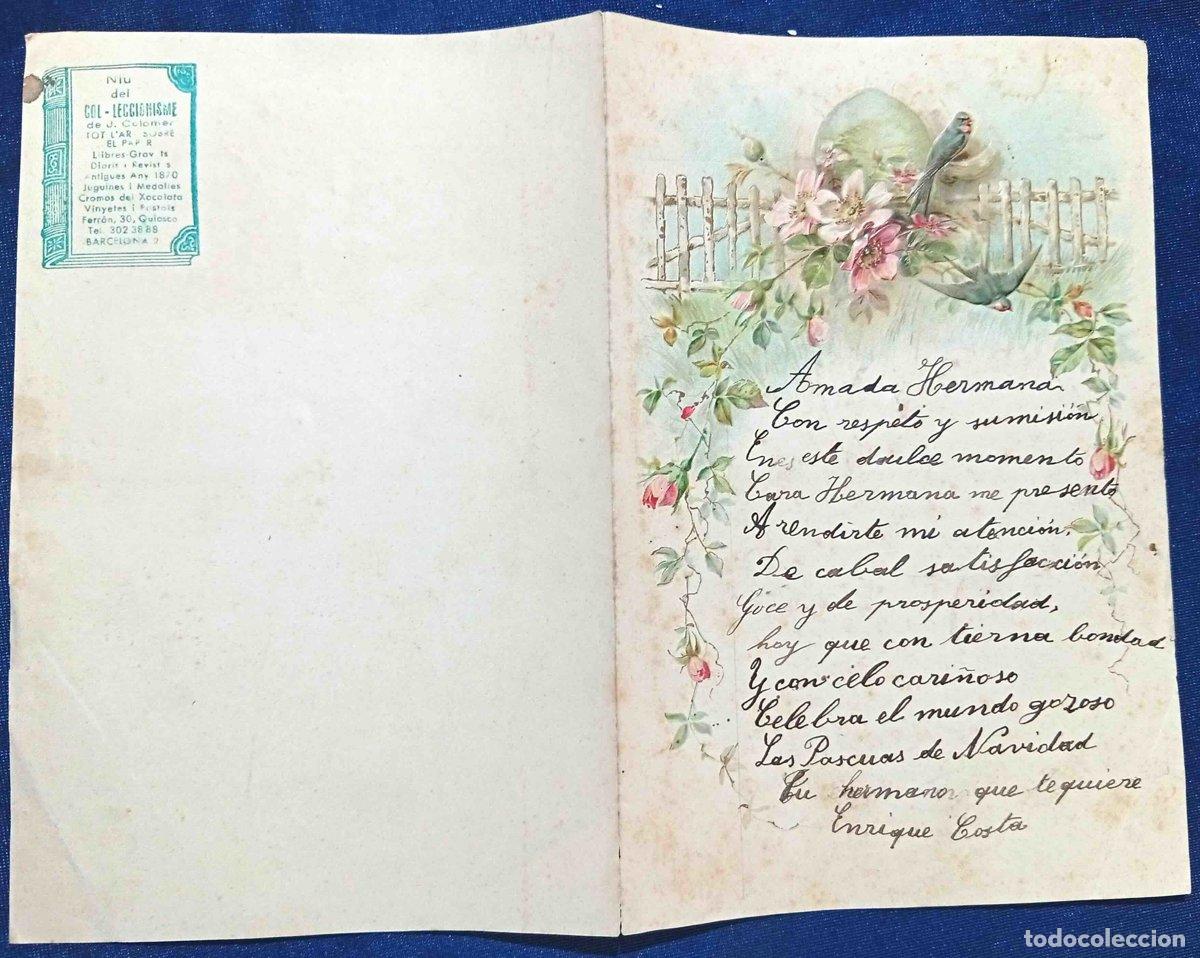 Niu
del
COL-LECCIONISME
de J. Colomer
TOT L'AR SOBRE
EL PAP R
Llibres-Grav ts
Diaris i Revist s
Antigues Any 1870
Juguines i Medalles
Cromos del Xocolata
Vinyetes i Postals
Ferrán, 30, Quiosco
Tel. 302 38 88
BARCELONA 2
Amada Hermana.
Con respeto y sumisión
En este dulce momento
Cara Hermana me presento
A rendirte mi atención,
De cabal satisfacción
Goce y de prosperidad,
hoy que con tierna bondad
Y con celo cariñoso
Celebra el mundo gozoso
Las Pascuas de Navidad
Tu hermano que te quiere
Enrique Costa
todocoleccion